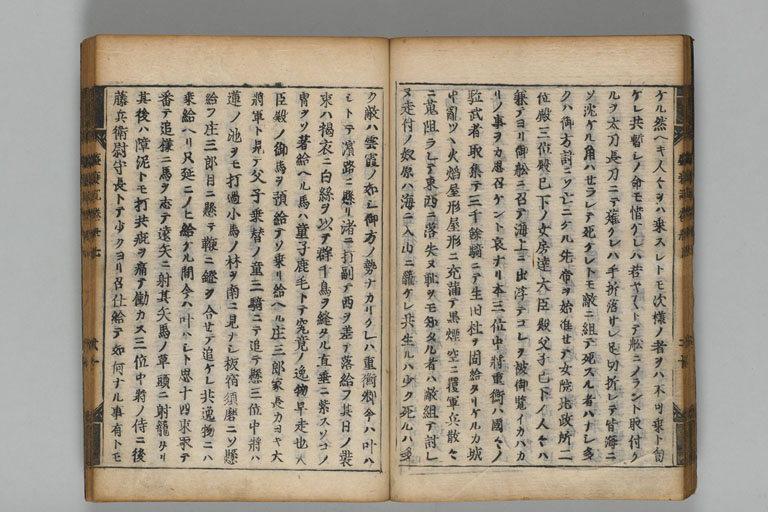 ケル然ヘキ人々ヲハ乗スレトモ次様ノ者ヲハ不可乗ト
ケレ共暫シノ命モ惜ケレハ若ヤトテ船ニノラント取付
ルヲ太刀長刀ニテ薙クレハ手折落サレ足切折レテ皆海ニ
ソ沈ケル角ハセラレテ死クレトモ敵ニ組テ死スル者ハナシ多
クハ御方討ニソ亡ニケル先帝ヲ始進セテ女院北政所二
位殿三位殿已下ノ女房達大臣殿父子已下ノ人々ハ
兼テヨリ御船ニ召テ海上ニ出浮テコレヲ被御覧イカハカ
リノ事ヲカ思召ケント哀ナリ本三位中将重衡ハ國々ノ
駈武者取集テ三千余騎ニテ生田社ヲ固給タリケルカ城
中乱ツヽ火焔屋形屋形ニ充満テ黒煙空ニ覆軍兵散々
ニ蒐阻ラレテ東西ニ落失ヌ恥ヲモ知タル者ハ敵組テ討レ
ヌ走付ノ奴原ハ海ニ入山ニ籠ケレ共生ルハ少ク死ルハ多
ク敵ハ雲霞ノ如シ御方ノ勢ナカリケレハ重衡卿今ハ叶ハ
シトテ濱路ニ懸リ渚ニ打副テ西ヲ差テ落給フ其日ノ装
束ハ褐衣ニ白絲ヲ以テ群千鳥ヲ縫タル直垂ニ紫スソコノ
冑ヲソ著給ヘル馬ハ童子鹿毛トテ究竟ノ逸物早走也大
臣殿ノ御馬ヲ預給テソ乗リ給ヘル庄三郎家長カヨキ大
将軍ト見テ父子乗替ノ童三騎ニテ追テ懸三位中将ハ
蓮ノ池ヲモ打過小馬ノ林ヲ南ニ見ナシ板宿須磨ニソ懸
給フ庄三郎目ニ懸テ鞭ニ鐙ヲ合セテ追ケレ共逸物ニハ
乗給ヘリ只延ニノヒ給ケル間今ハ叶ハシト思十四束取テ
番テ追様ニ馬ヲ志テ遠矢ニ射其矢馬ノ草頭ニ射籠タリ
其後ハ障泥トモ打共疵ヲ痛テ働カス三位中将ノ侍ニ後
藤兵衛尉守長トテ少クヨリ召仕給テ如何ナル事有トモ